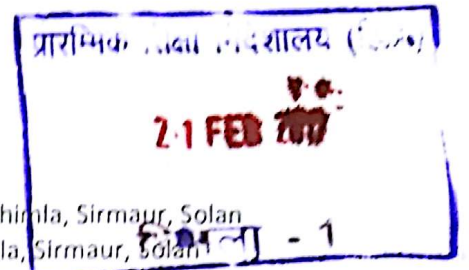 प्रारम्भिक शिक्षा निदेशालय
21 FEB
himla, Sirmaur, Solan
la, Sirmaur, Solan
- 1